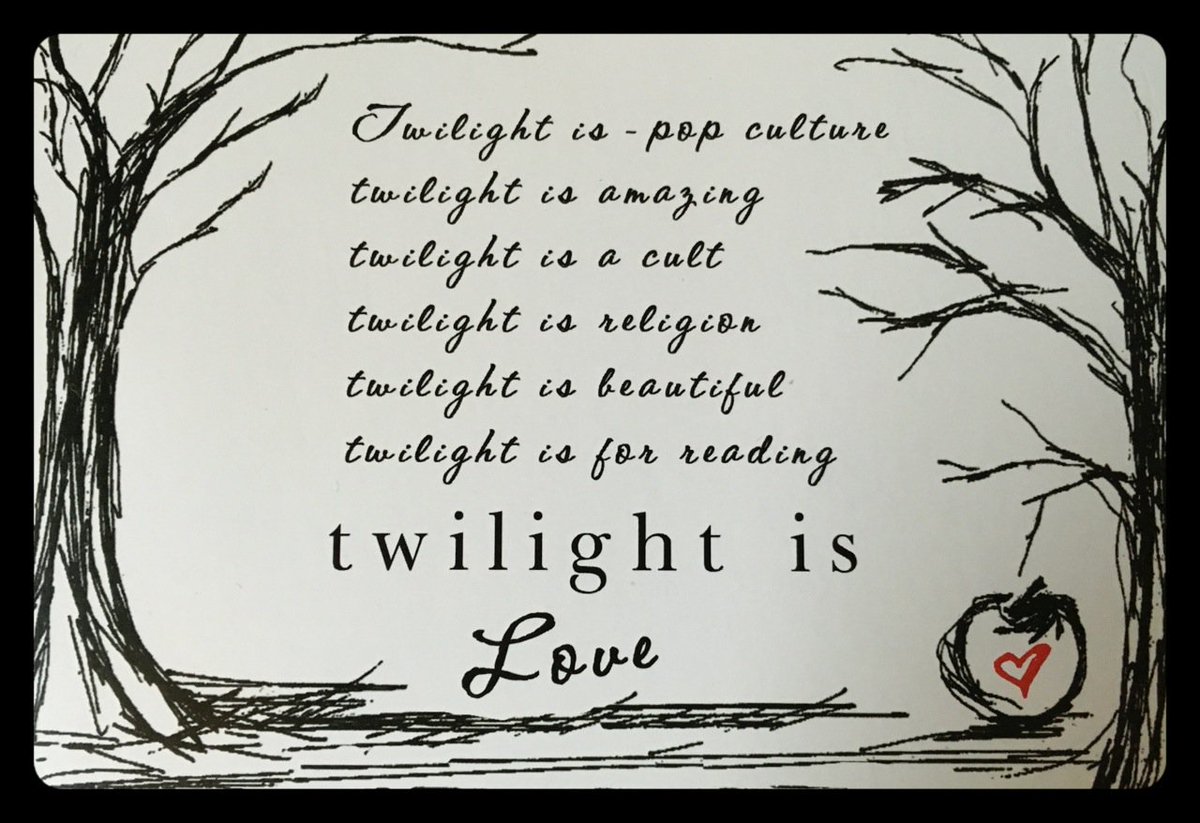 Twilight is - pop culture
twilight is amazing
twilight is a cult
twilight is religion
twilight is beautiful
twilight is for reading
twilight is
Love